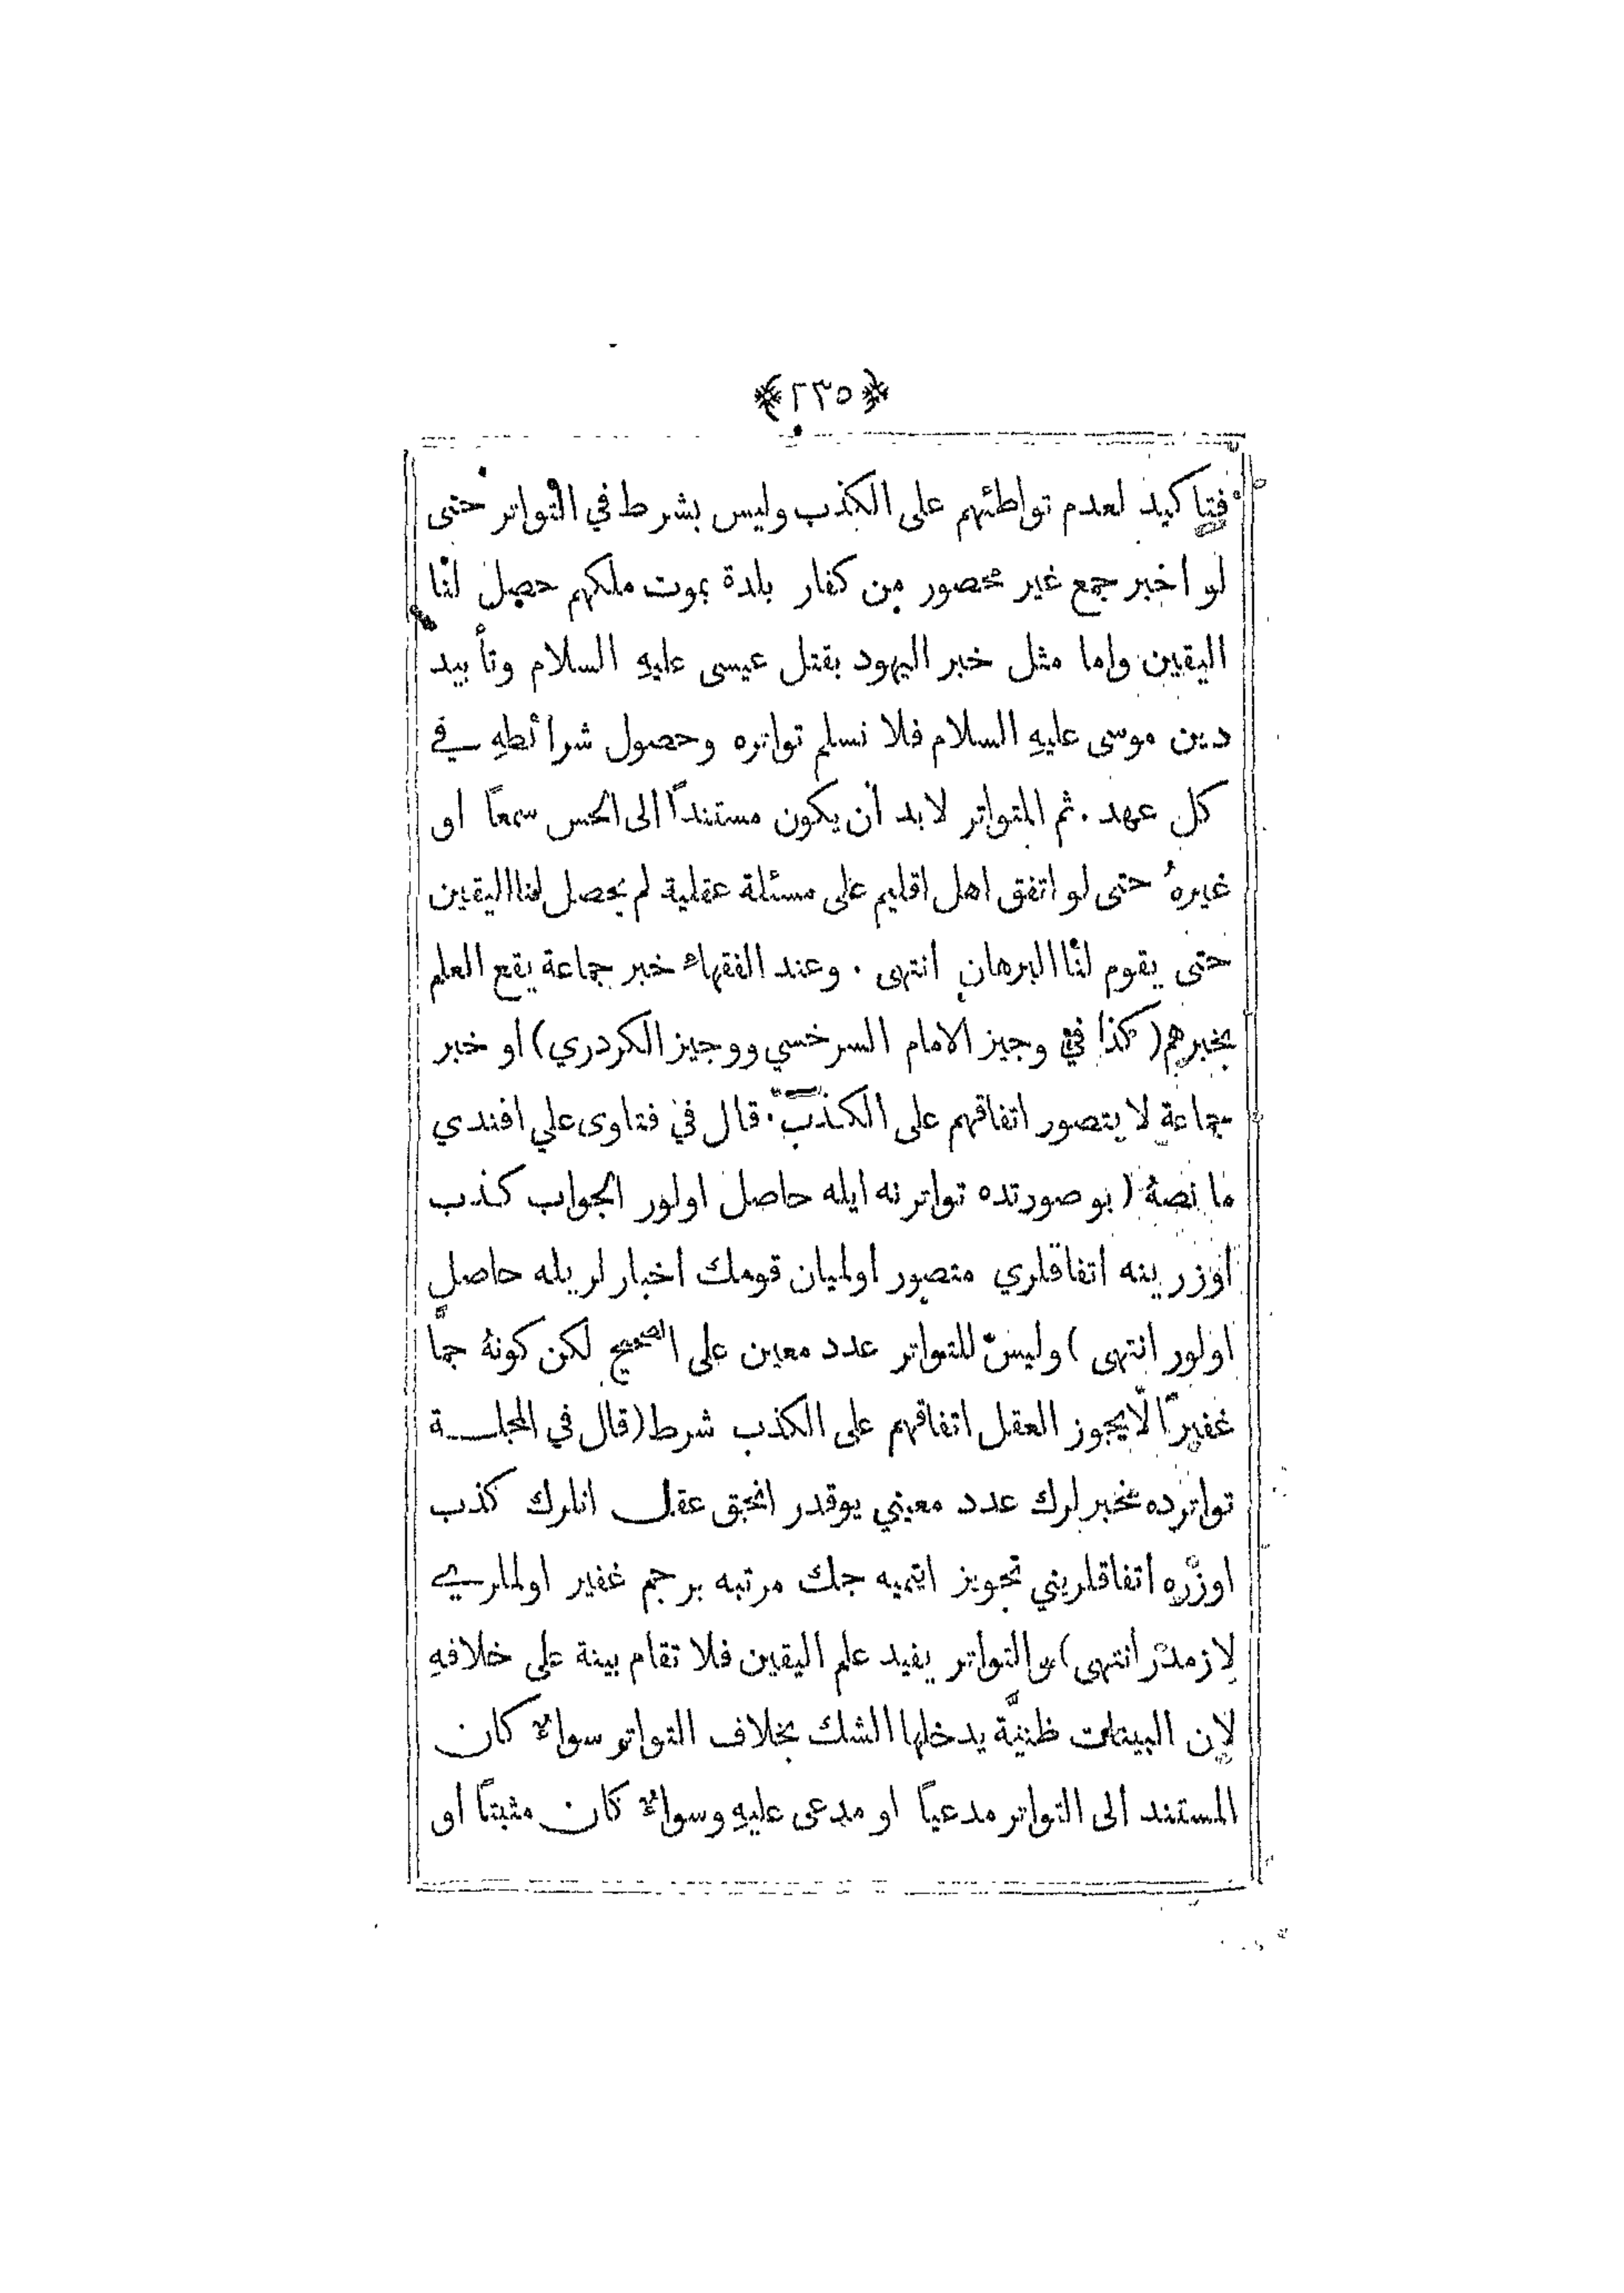 ﴿٢٣٥﴾
فتاكيد لعدم تواطئهم على الكذب وليس بشرط في التواتر حتى
لو اخبر جمع غير محصور من كفار بلدة بموت ملكهم حصل لنا
اليقين واما مثل خبر اليهود بقتل عيسى عليهِ السلام وتأبيد
دين موسى عليهِ السلام فلا نسلم تواتره وحصول شرائطهِ في
كل عهد . ثم المتواتر لابد أن يكون مستنداً الى الحس سمعاً او
غيرهُ حتى لو اتفق اهل اقليم على مسئلة عقلية لم يحصل لنا اليقين
حتى يقوم لنا البرهان انتهى . وعند الفقهاء خبر جماعة يقع العلم
بخبرهم ( كذا في وجيز الامام السرخسي ووجيز الكردري ) او خبر
جماعة لا يتصور اتفاقهم على الكذب . قال في فتاوى علي افندي
ما نصهُ ( بو صورتده تواتر نه ايله حاصل اولور الجواب كذب
اوزرينه اتفاقلري متصور اولميان قومك اخبار لريله حاصل
اولور انتهى ) وليس للتواتر عدد معين على الصحيح لكن كونهُ جمًّا
غفيرًا لا يجوز العقل اتفاقهم على الكذب شرط ( قال في المجلـــة
تواترده مخبرلرك عدد معيني يوقدر انجق عقل انلرك كذب
اوزره اتفاقلريني تجويز ايتميه جك مرتبه بر جم غفير اولملري
لازمدر انتهى ) والتواتر يفيد علم اليقين فلا تقام بينة على خلافهِ
لان البينات ظنيَّة يدخلها الشك بخلاف التواتر سواء كان
المستند الى التواتر مدعياً او مدعى عليهِ وسواء كان مثبتاً او